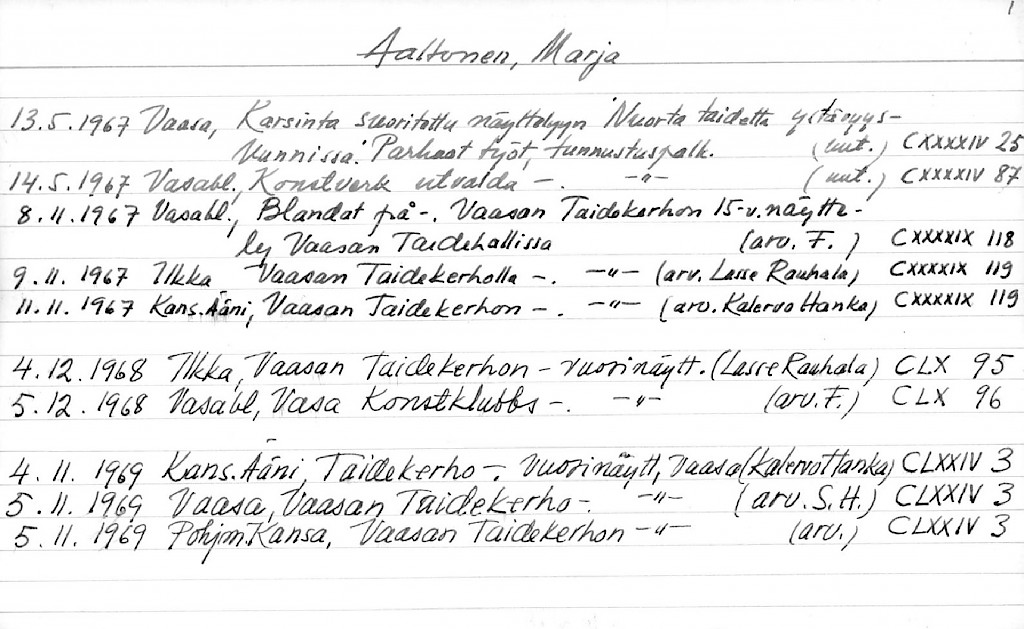 1
Aaltonen, Marja
13.5.1967 Vaasa, Karsinta suoritettu näyttelyyn 'Nuorta taidetta ystävyys-
kunnissa'. Parhaat työt, tunnustuspalk. (uut.) CXXXXIV 25
14.5.1967 Vasabl., Konstverk utvalda -. -"- (uut.) CXXXXIV 87
8.11.1967 Vasabl., Blandat på -. Vaasan Taidekerhon 15-v. näytte-
ly Vaasan Taidehallissa (arv. F.) CXXXXIX 118
9.11.1967 Ilkka Vaasan Taidekerholla -. -"- (arv. Lasse Rauhala) CXXXXIX 119
11.11.1967 Kans.Ääni, Vaasan Taidekerhon -. -"- (arv. Kalervo Hanka) CXXXXIX 119
4.12.1968 Ilkka, Vaasan Taidekerhon - vuosinäytt. (Lasse Rauhala) CLX 95
5.12.1968 Vasabl, Vasa Konstklubbs -. -"- (arv. F.) CLX 96
4.11.1969 Kans.Ääni, Taidekerho -. Vuosinäytt, Vaasa (Kalervo Hanka) CLXXIV 3
5.11.1969 Vaasa, Vaasan Taidekerho -. -"- (arv. S.H.) CLXXIV 3
5.11.1969 Pohjm.Kansa, Vaasan Taidekerhon -"- (arv.) CLXXIV 3